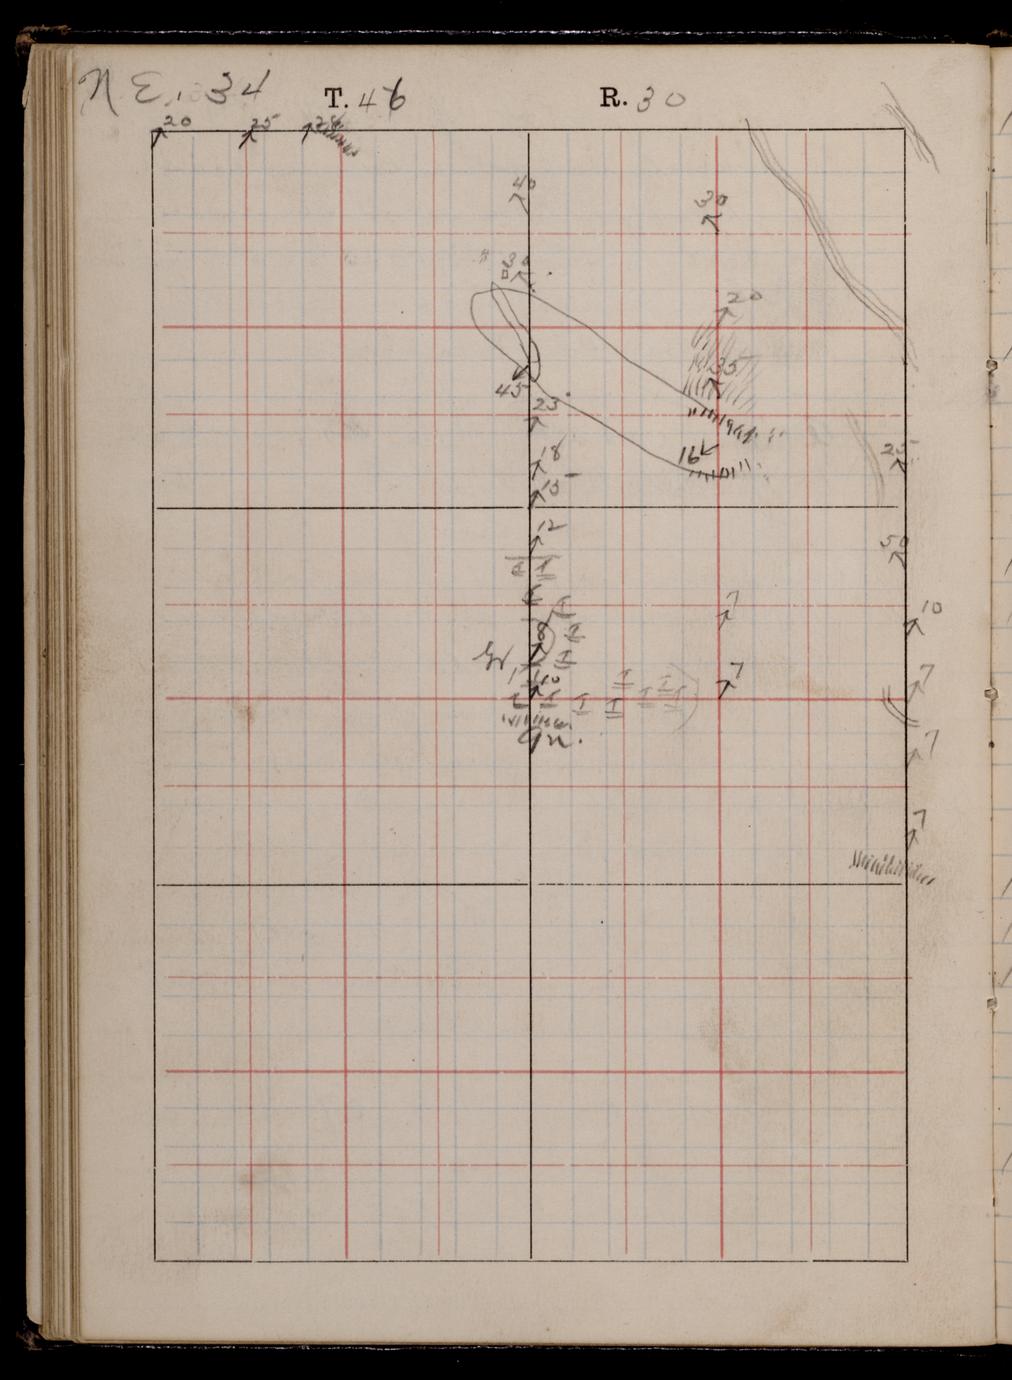 N E. 34 T. 46 R. 30
20 25
40
30
30
20
35
45
23
16
18
25
15
12
50
I
7
10
8
I
I
10
7
7
I I
I I I I I
7
7